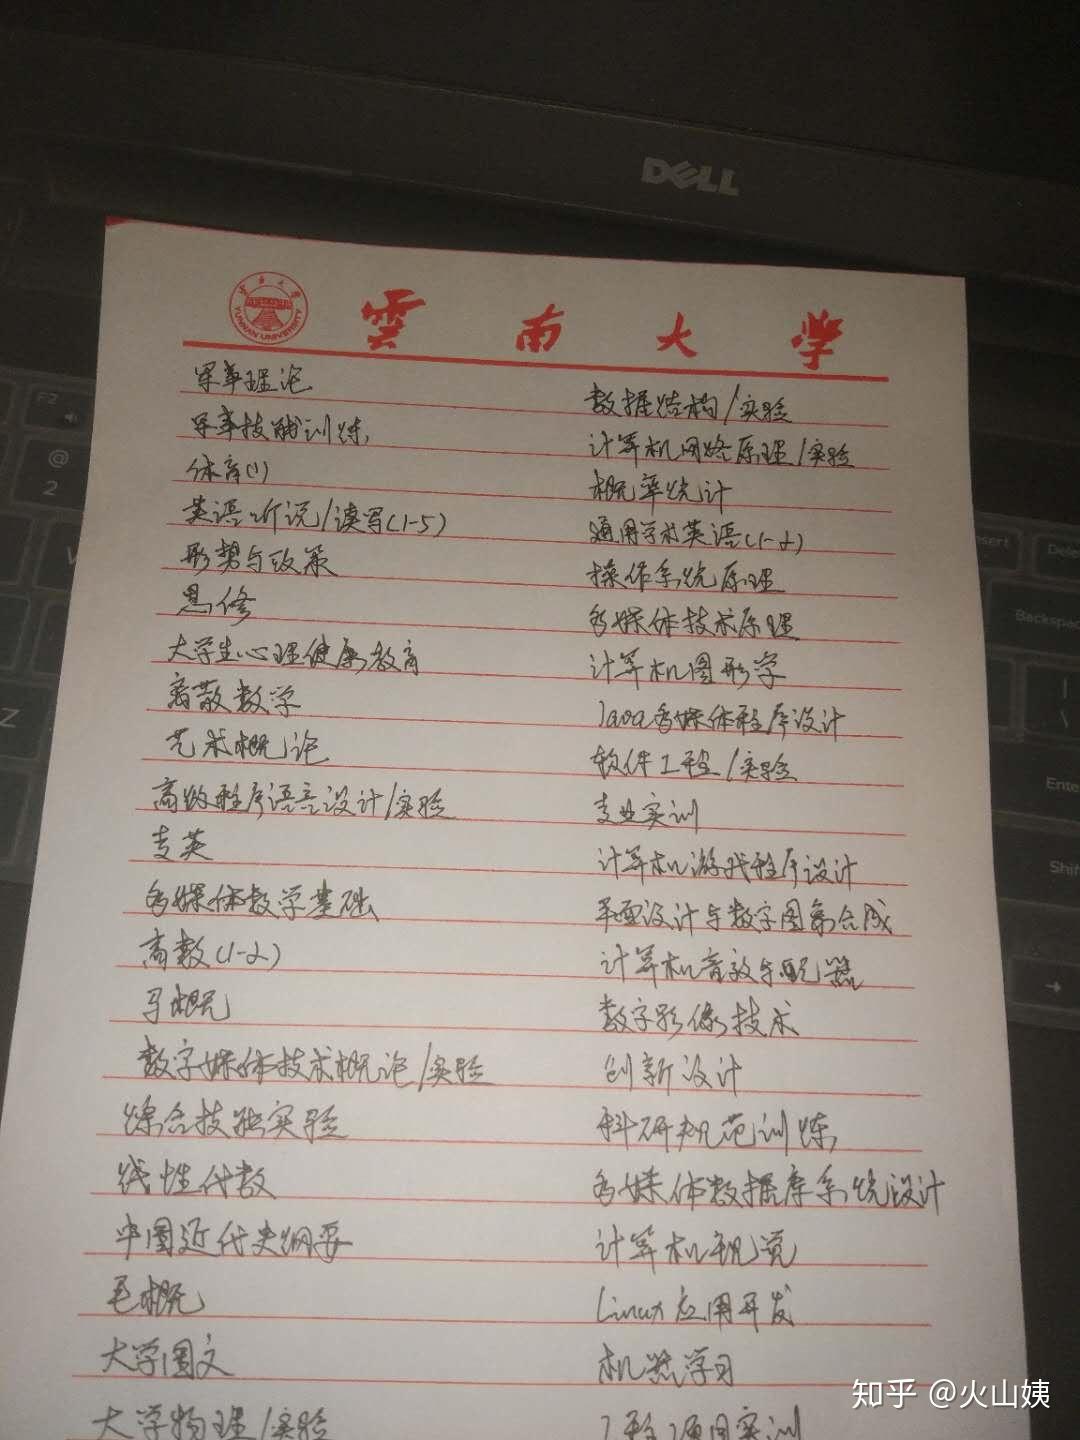 DELL
雲南大学
YUNNAN UNIVERSITY
军事理论
军事技能训练
体育(1)
英语听说/读写(1-5)
形势与政策
思修
大学生心理健康教育
离散数学
艺术概论
高级程序语言设计/实验
专英
多媒体数学基础
高数(1-2)
马概
数字媒体技术概论/实验
综合技能实验
线性代数
中国近代史纲要
毛概
大学国文
大学物理/实验
数据结构/实验
计算机网络原理/实验
概率统计
通用学术英语(1-2)
操作系统原理
多媒体技术原理
计算机图形学
Java多媒体程序设计
软件工程/实验
专业实训
计算机游戏程序设计
平面设计与数字图像合成
计算机音效与配器
数字影像技术
创新设计
科研规范训练
多媒体数据库系统设计
计算机视觉
Linux应用开发
机器学习
实训
F2
@
2
Z
Insert
Delete
Backspace
Enter
Shift
知乎 @火山姨